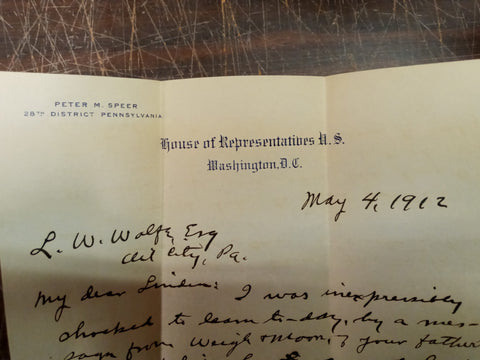 PETER M. SPEER
28TH DISTRICT PENNSYLVANIA
House of Representatives U.S.
Washington, D.C.
May 4, 1912
L. W. Wolfe, Esq
Oil City, Pa.
My dear Linden: I was inexpressibly
shocked to learn to-day, by a mes-
sage from Weigh & Moon, of your father